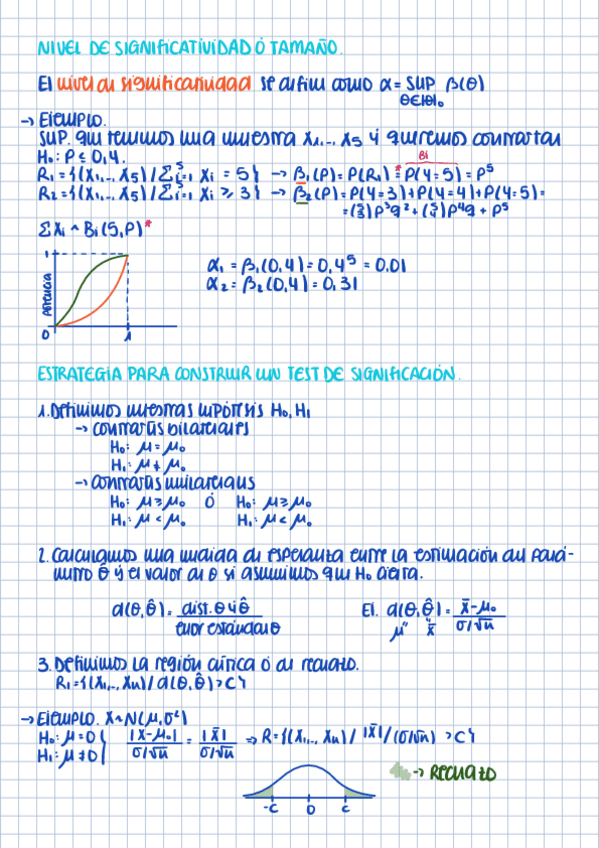 NIVEL DE SIGNIFICATIVIDAD Ó TAMAÑO.
El nivel de significatividad se define como α = SUP β(θ)
θ∈Θ₀
→ EJEMPLO.
SUP. que tenemos una muestra X₁,..., X₅ y queremos contrastar
H₀: P ≤ 0,4.
Bi
R₁ = {(X₁,..., X₅) / Σ⁵ᵢ₌₁ Xi = 5} → β₁(P) = P(R₁) =* P(Y = 5) = P⁵
R₂ = {(X₁,..., X₅) / Σ⁵ᵢ₌₁ Xi ≥ 3} → β₂(P) = P(Y = 3) + P(Y = 4) + P(Y = 5) =
= (⁵₃)P³q² + (⁵₄)P⁴q + P⁵
ΣXi ~ Bi(5, P)*
1
POTENCIA
0
1
α₁ = β₁(0,4) = 0,4⁵ = 0.01
α₂ = β₂(0,4) = 0,31
ESTRATEGIA PARA CONSTRUIR UN TEST DE SIGNIFICACIÓN.
1. Definimos nuestras hipótesis H₀, H₁
→ contrastes bilaterales
H₀: μ = μ₀
H₁: μ ≠ μ₀
→ contrastes unilaterales
H₀: μ ≥ μ₀ Ó H₀: μ ≥ μ₀
H₁: μ < μ₀ H₁: μ < μ₀
2. Calculamos una medida de esperanza entre la estimación del pará-
metro θ̂ y el valor de θ si asumimos que H₀ cierta.
d(θ, θ̂) = dist. θ y θ̂ / error estándar θ
EJ. d(θ, θ̂) = x̄ - μ₀ / σ/√n
μ" x̄"
3. Definimos la región crítica o de rechazo.
R₁ = {(X₁,..., Xn) / d(θ, θ̂) > C}
→ EJEMPLO. X ~ N(μ, σ²)
H₀: μ = 0 } |X - μ₀| / σ/√n = |X̄| / σ/√n ⇒ R = {(X₁,..., Xn) / |X̄| / (σ/√n) > C}
H₁: μ ≠ 0
→ RECHAZO
-C 0 C